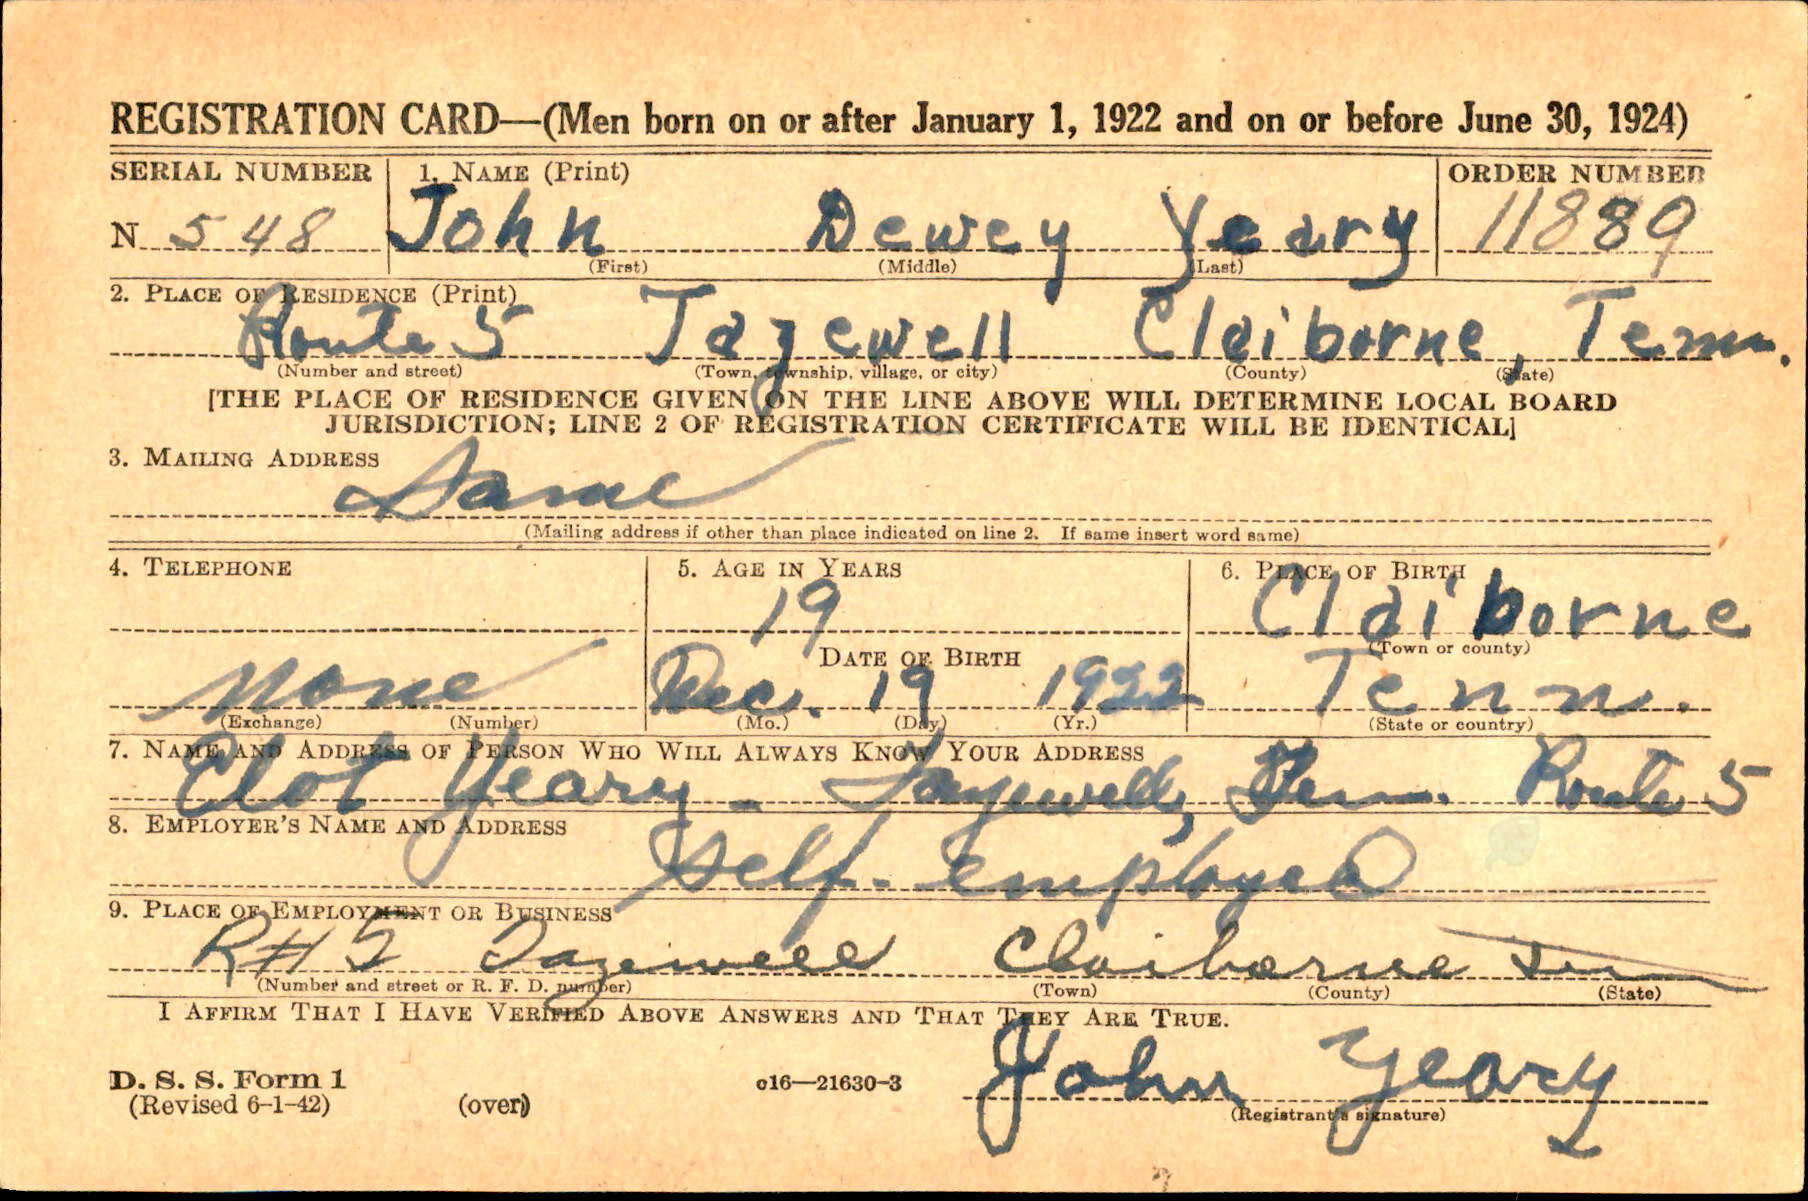 REGISTRATION CARD—(Men born on or after January 1, 1922 and on or before June 30, 1924)
SERIAL NUMBER 1. NAME (Print) ORDER NUMBER
N 548 John Dewey Yeary 11889
(First) (Middle) (Last)
2. PLACE OF RESIDENCE (Print)
Route 5 Tazewell Claiborne, Tenn.
(Number and street) (Town, township, village, or city) (County) (State)
[THE PLACE OF RESIDENCE GIVEN ON THE LINE ABOVE WILL DETERMINE LOCAL BOARD
JURISDICTION; LINE 2 OF REGISTRATION CERTIFICATE WILL BE IDENTICAL]
3. MAILING ADDRESS
Same
(Mailing address if other than place indicated on line 2. If same insert word same)
4. TELEPHONE 5. AGE IN YEARS 6. PLACE OF BIRTH
19 Claiborne
DATE OF BIRTH (Town or county)
None Dec. 19 1922 Tenn.
(Exchange) (Number) (Mo.) (Day) (Yr.) (State or country)
7. NAME AND ADDRESS OF PERSON WHO WILL ALWAYS KNOW YOUR ADDRESS
Clot Yeary - Tazewell, Tenn. Route 5
8. EMPLOYER'S NAME AND ADDRESS
Self-employed
9. PLACE OF EMPLOYMENT OR BUSINESS
R#5 Tazewell Claiborne Tenn
(Number and street or R. F. D. number) (Town) (County) (State)
I AFFIRM THAT I HAVE VERIFIED ABOVE ANSWERS AND THAT THEY ARE TRUE.
John Yeary
D. S. S. Form 1 c16—21630-3
(Revised 6-1-42) (over) (Registrant's signature)